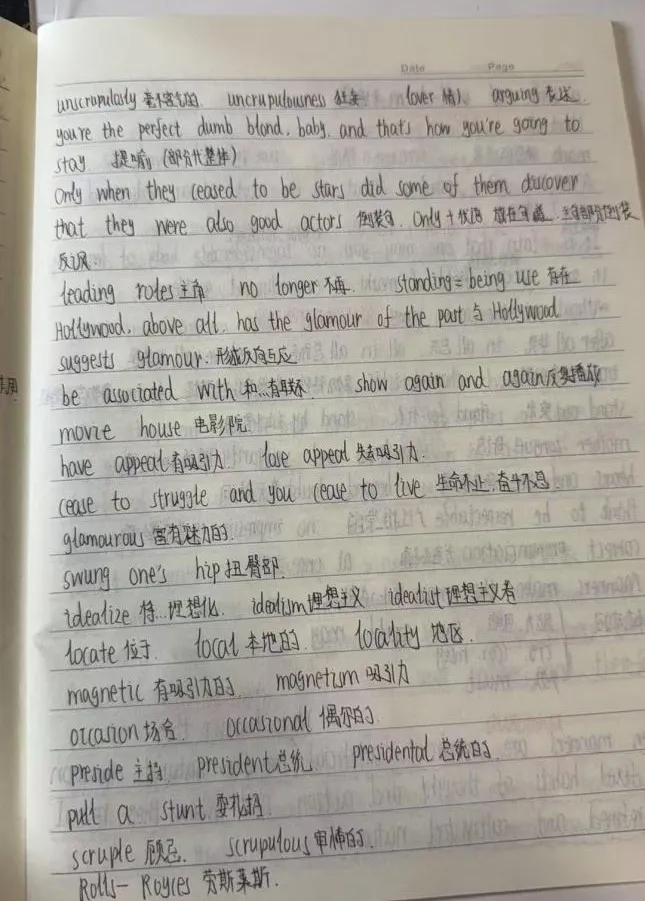 Date Page
unscrupulously 毫不客气的 uncrupulousness 狂妄 (over 情) arguing 表达
you're the perfect dumb blond, baby, and that's how you're going to
stay 提喻 (部分代整体)
Only when they ceased to be stars did some of them discover
that they were also good actors 倒装句. Only + 状语 放在句首. 主句部分倒装
反讽
leading roles 主角 no longer 不再. standing = being use 存在
Hollywood, above all, has the glamour of the past 与 Hollywood
suggests glamour. 形成反向与应
be associated with 和...有联系 show again and again 反复播放
movie house 电影院
have appeal 有吸引力 lose appeal 失去吸引力.
cease to struggle and you cease to live 生命不止, 奋斗不息
glamourous 富有魅力的.
swung one's hip 扭臀部.
idealize 将...理想化. idealism 理想主义 idealist 理想主义者
locate 位于. local 本地的. locality 地区.
magnetic 有吸引力的. magnetism 吸引力
occasion 场合. occasional 偶尔的.
preside 主持 president 总统 presidental 总统的.
pull a stunt. 耍花招.
scruple 顾忌. scrupulous 审慎的.
Rolls- Royces 劳斯莱斯.